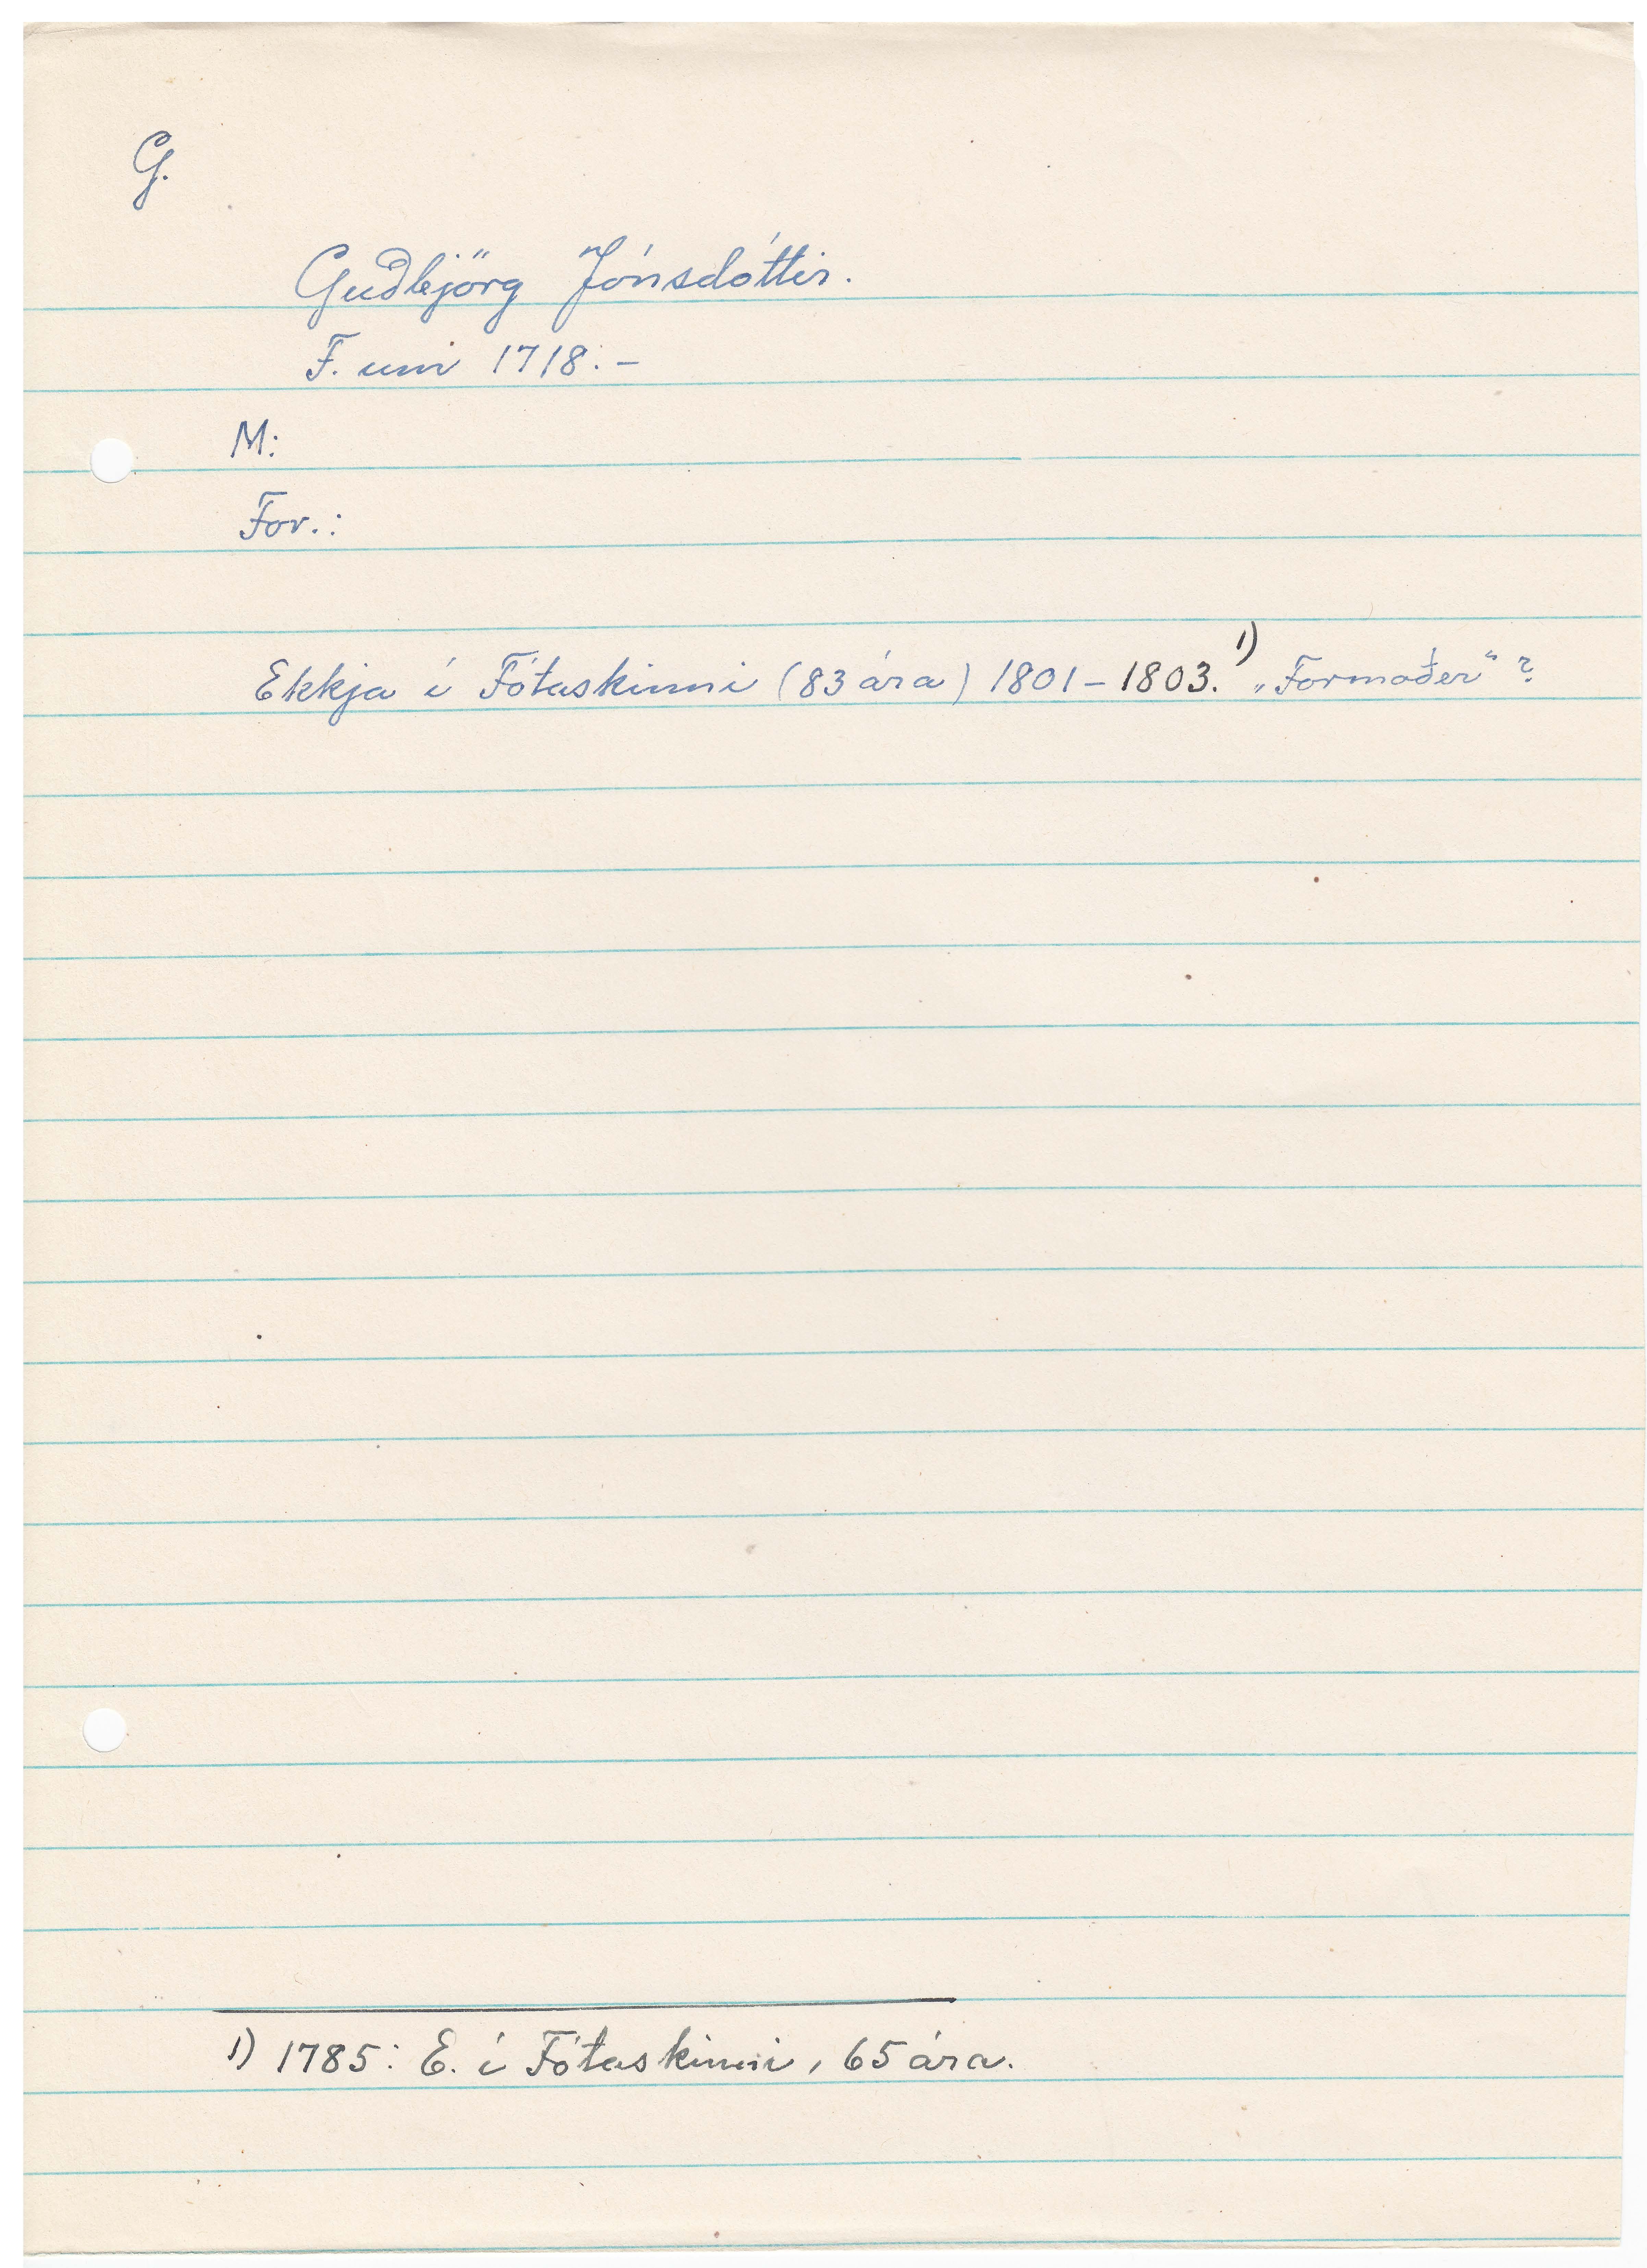 G.
Guðbjörg Jónsdóttir.
F. um 1718. -
M:
For.:
Ekkja í Fótaskinni (83 ára) 1801 - 1803. 1) „Formoðer“ ?
1) 1785: E. í Fótaskinni, 65 ára.